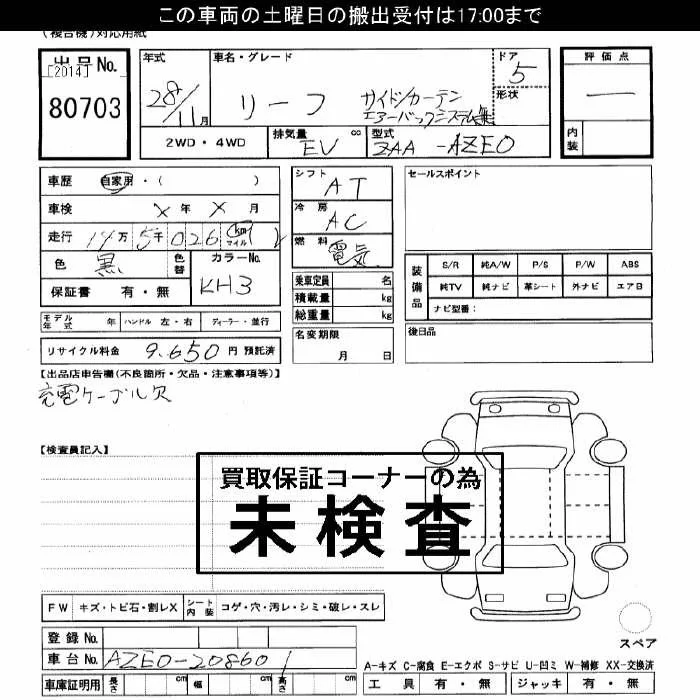 この車両の土曜日の搬出受付は17:00まで
(複合機)対応用紙
出品No.
[2014]
80703
年式
28/11月
車名・グレード
リーフ サイド/カーテン
エアーバックシステム無
ドア
5
形状
評価点
―
内装
2WD・4WD
排気量 cc
EV
型式
ZAA-AZE0
車歴 自家用・( )
車検 X年 X月
走行 14万5千026 km マイル
色 黒 色替
カラーNo.
KH3
保証書 有・無
シフト
AT
冷房
AC
燃料
電気
セールスポイント
乗車定員 名
積載量 kg
総重量 kg
装備品
S/R 純A/W P/S P/W ABS
純TV 純ナビ 革シート 外ナビ エアB
ナビ型番:
モデル年式 年 ハンドル 左・右 ディーラー・並行
名変期限
月 日
後日品
リサイクル料金 9,650 円 預託済
【出品店申告欄(不良箇所・欠品・注意事項等)】
充電ケーブル欠
【検査員記入】
買取保証コーナーの為
未検査
FW キズ・トビ石・割レX シート内装 コゲ・穴・汚レ・シミ・破レ・スレ
登録No.
車台No. AZE0-208601
車庫証明用 長さ cm 幅 cm 高さ cm
スペア
A-キズ C-腐食 E-エクボ S-サビ U-凹ミ W-補修 XX-交換済
工具 有・無 ジャッキ 有・無